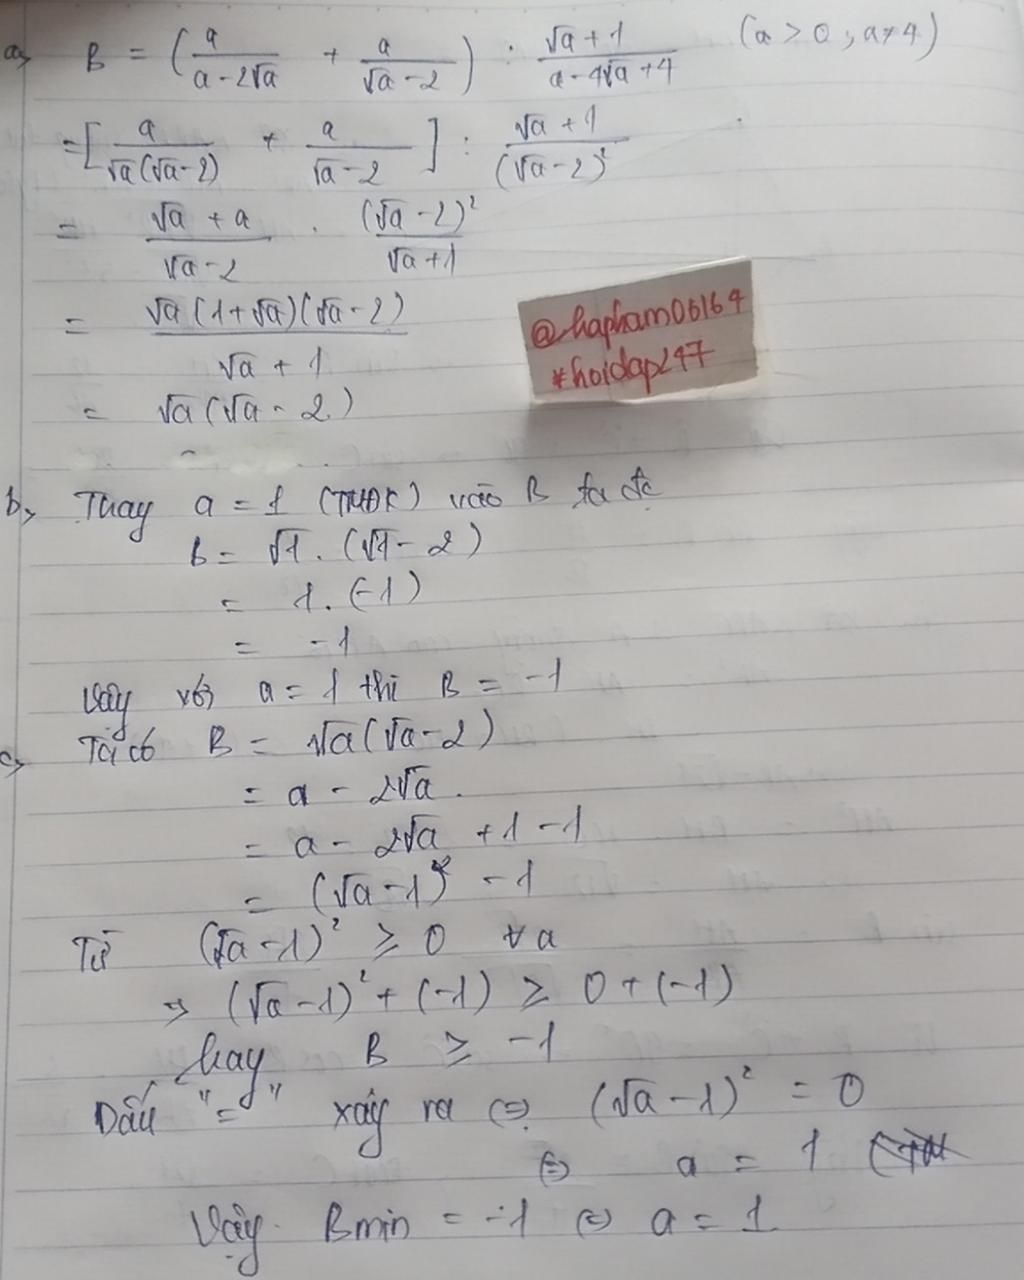 a, B = (a/(a-2√a) + a/(√a-2)) : (√a+1)/(a-4√a+4) (a > 0, a≠4)
= [a/(√a(√a-2)) + a/(√a-2)] : (√a+1)/(√a-2)²
= (√a+a)/(√a-2) . (√a-2)²/(√a+1)
= √a(1+√a)(√a-2)/(√a+1)
@hapham06164
#hoidap247
= √a(√a-2)
b, Thay a = 1 (TMĐK) vào B ta đc
B = √1.(√1-2)
= 1.(-1)
= -1
Vậy với a = 1 thì B = -1
c, Ta có B = √a(√a-2)
= a - 2√a.
= a - 2√a + 1 - 1
= (√a-1)² - 1
Từ (√a-1)² ≥ 0 ∀a
⇒ (√a-1)² + (-1) ≥ 0 + (-1)
hay B ≥ -1
Dấu "=" xảy ra ⇔ (√a-1)² = 0
⇔ a = 1
Vậy Bmin = -1 ⇔ a = 1